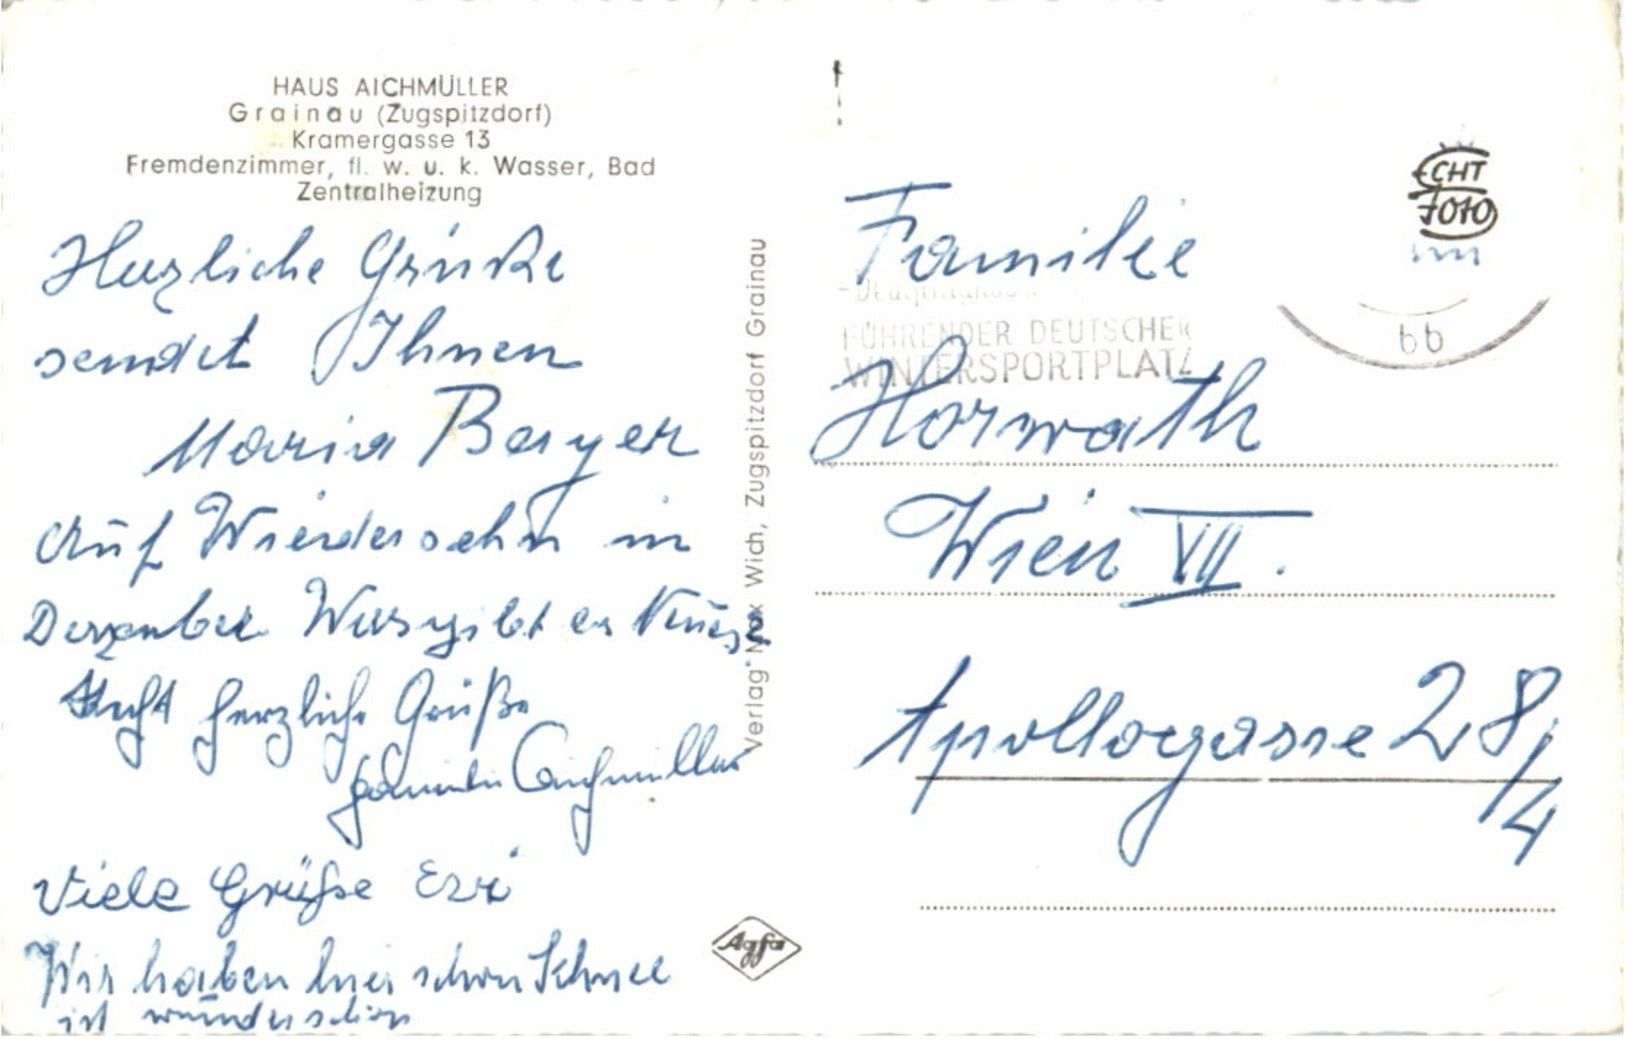 HAUS AICHMÜLLER
Grainau (Zugspitzdorf)
Kramergasse 13
Fremdenzimmer, fl. w. u. k. Wasser, Bad
Zentralheizung
Herzliche Grüße
sendet Ihnen
Maria Bayer
Auf Wiedersehn in
Dezember Was gibt es Neues
Recht herzliche Grüße
Familie Aichmüller
Viele Grüße Evi
Wir haben hier schon Schnee
ist wunderschön
Verlag Max Wich, Zugspitzdorf Grainau
Agfa
ECHT
FOTO
FÜHRENDER DEUTSCHER
WINTERSPORTPLATZ
bb
Familie
Horwath
Wien VII.
Apollogasse 28/4